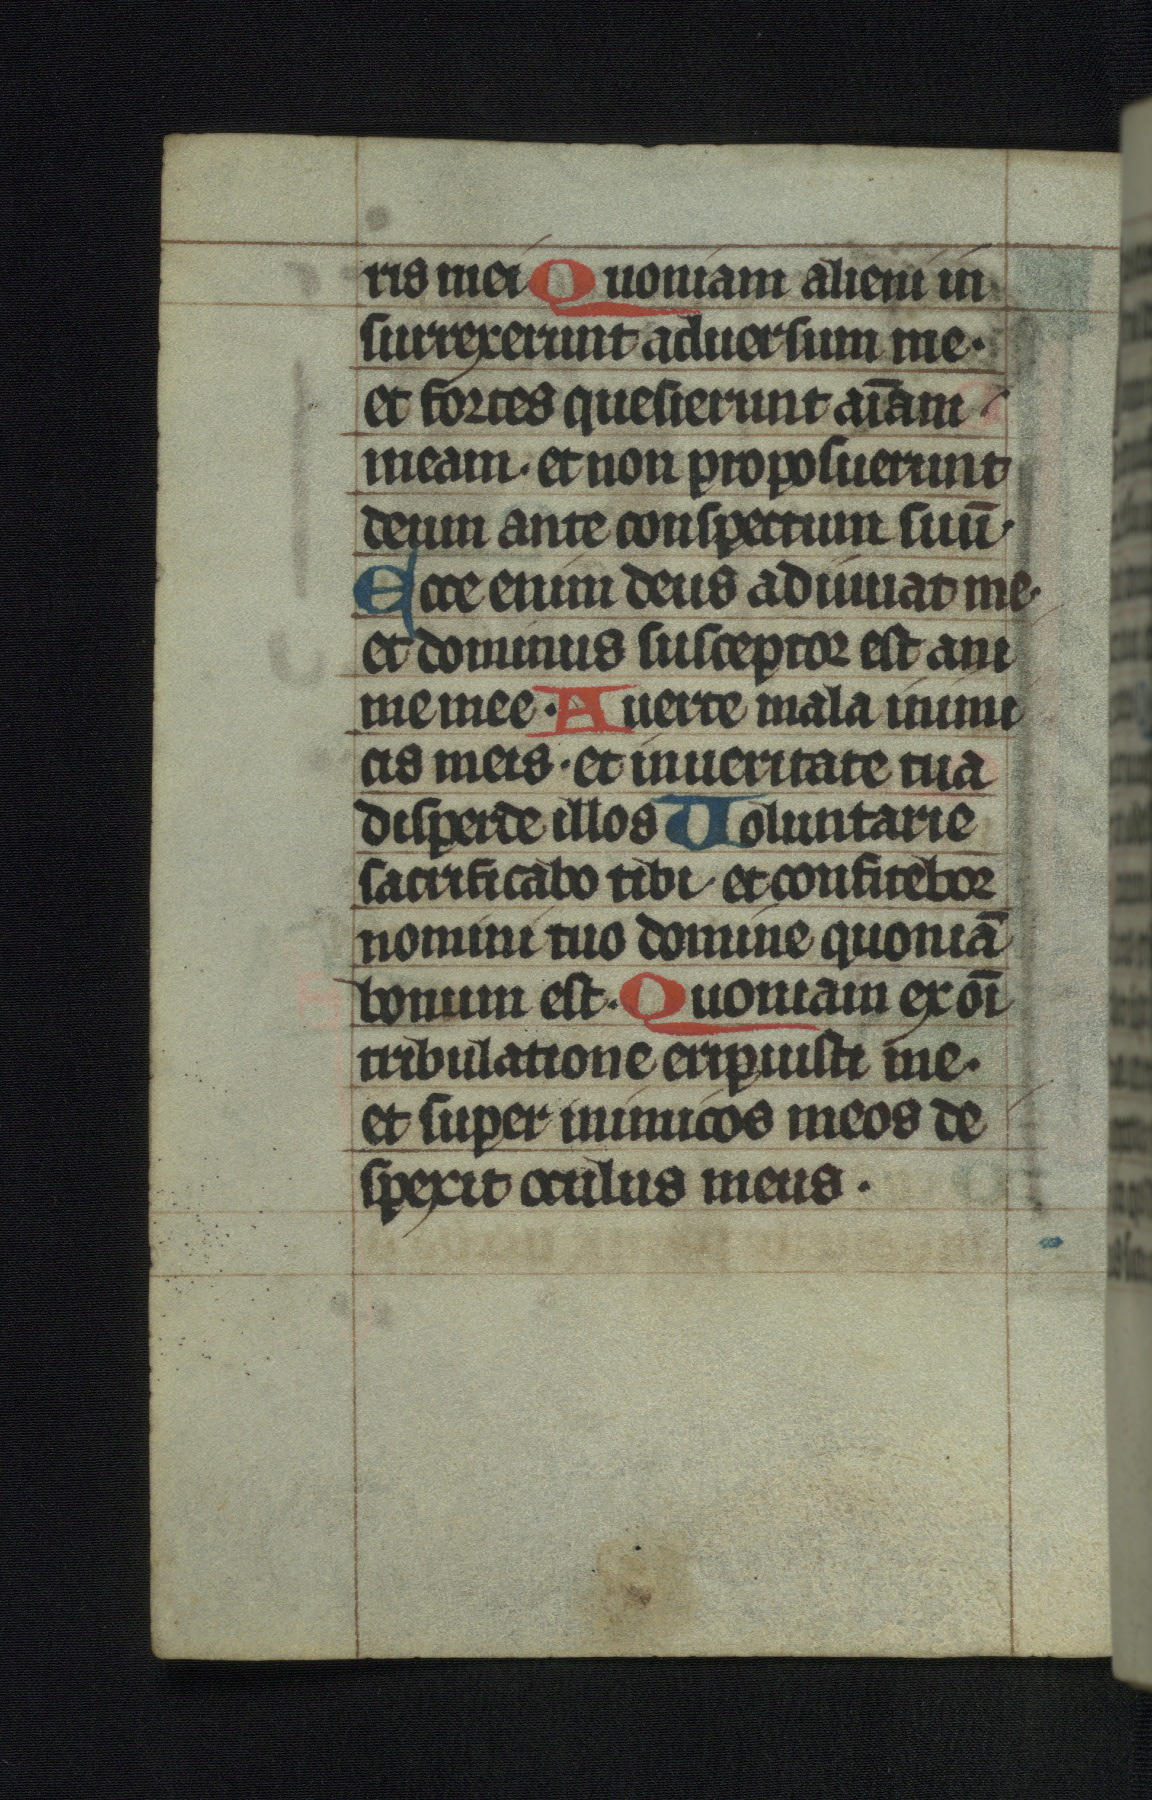 ris mei Quoniam alieni in
surrexerunt aduersum me·
et fortes quesierunt aīam
meam· et non proposuerunt
deum ante conspectum suū·
Ecce enim deus adiuuat me·
et dominus susceptor est ani
me mee· Auerte mala inimi
cis meis· et in ueritate tua
disperde illos Voluntarie
sacrificabo tibi et confitebor
nomini tuo domine quoniā
bonum est· Quoniam ex oī
tribulatione eripuisti me·
et super inimicos meos de
spexit oculus meus·